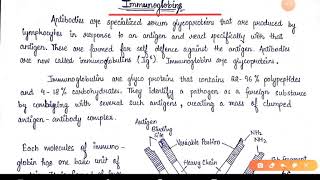 Immunoglobins
Antibodies are specialized serum glycoproteins that are produced by
lymphocytes in response to an antigen and react specifically with that
antigen. These are formed for self defence against the antigen. Antibodies
are now called immunoglobulins (Ig's). Immunoglobins are glycoproteins.
Immunoglobulins are glyco proteins that contains 82-96% polypeptides
and 4-18% carbohydrates. They identify a pathogen as a foreign substance
by combining with several such antigens, creating a mass of clumped
antigen-antibody complex.
Antigen
Binding
Site
Variable Portion
NH2
NH2
Heavy Chain
Each molecules of immuno-
globin has one basic unit of